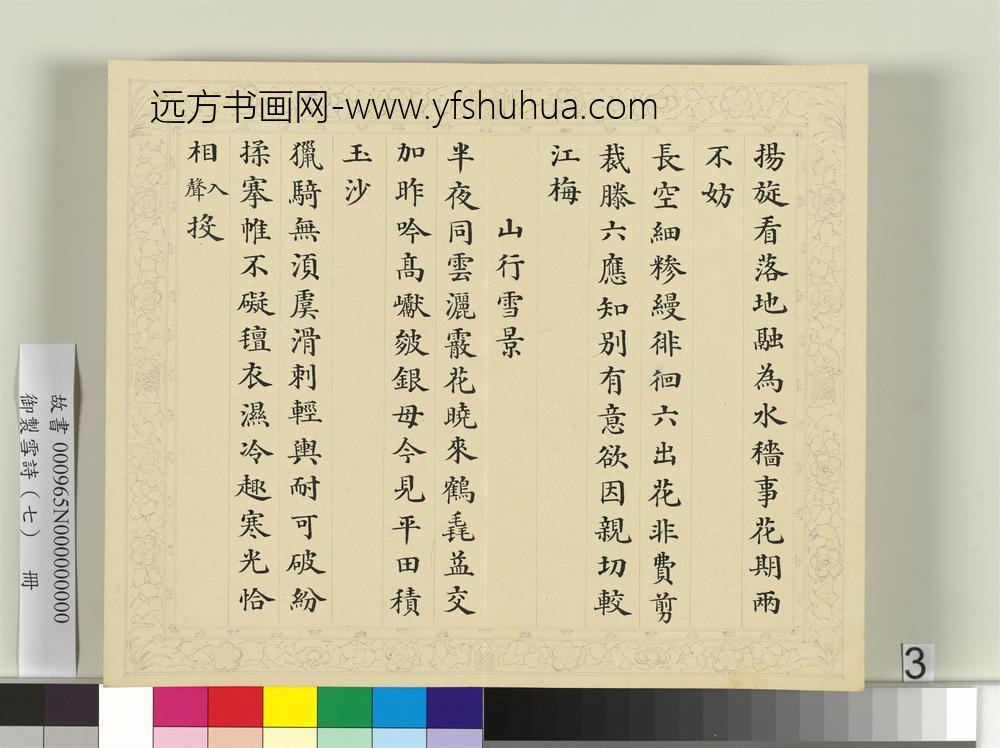 远方书画网-www.yfshuhua.com
揚旋看落地融為水穡事花期兩
不妨
長空細糝縵徘徊六出花非費剪
裁滕六應知別有意欲因親切較
江梅
山行雪景
半夜同雲灑霰花曉來鶴毳益交
加昨吟高巘皴銀母今見平田積
玉沙
獵騎無須虞滑刺輕輿耐可破紛
揉搴帷不礙氊衣濕冷趣寒光恰
相入聲投
故書 000965N000000000
御製雪詩（七） 冊
3